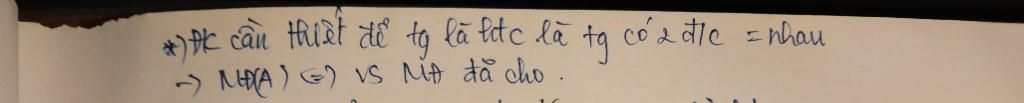 *) ĐK cần thiết để tg là htc là tg có 2 đ/c = nhau
-> MĐ(A) <=> vs MĐ đã cho.